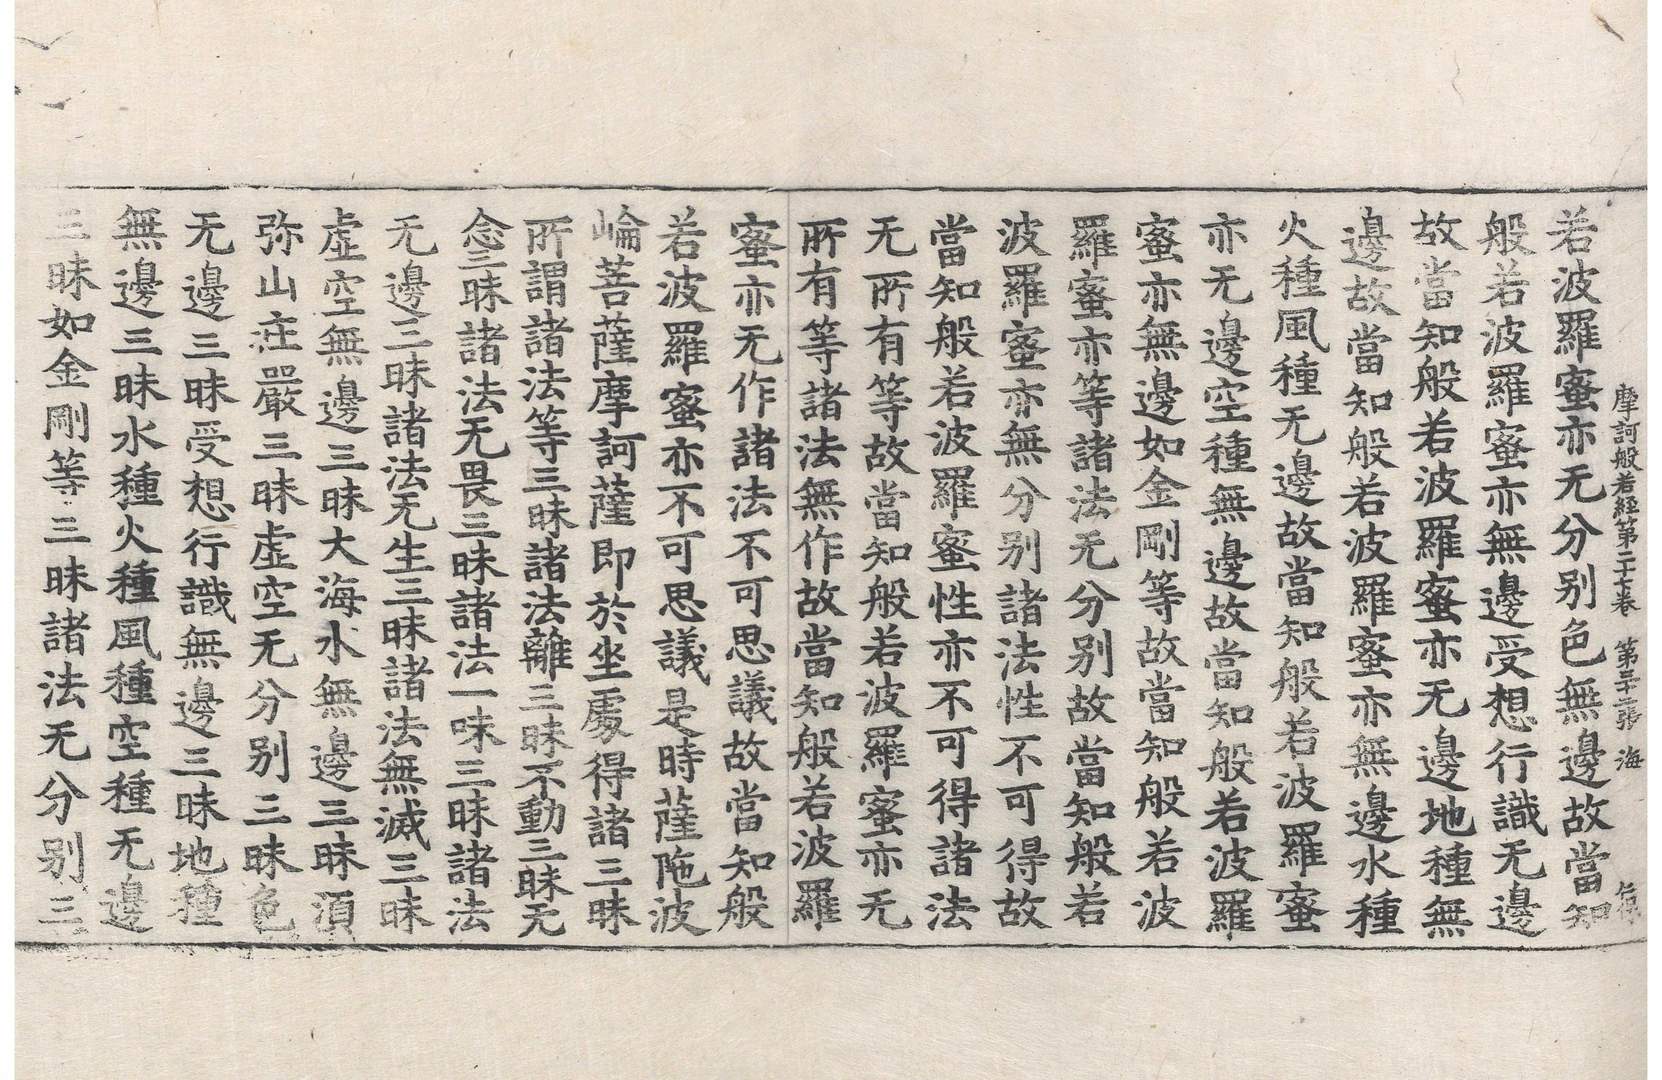 若波羅蜜亦无分別色無邊故當知
摩訶般若經第二十七卷 第三十二張 海
般若波羅蜜亦無邊受想行識无邊
故當知般若波羅蜜亦无邊地種無
邊故當知般若波羅蜜亦無邊水種
火種風種无邊故當知般若波羅蜜
亦无邊空種無邊故當知般若波羅
蜜亦無邊如金剛等故當知般若波
羅蜜亦等諸法无分別故當知般若
波羅蜜亦無分別諸法性不可得故
當知般若波羅蜜性亦不可得諸法
无所有等故當知般若波羅蜜亦无
所有等諸法無作故當知般若波羅
蜜亦无作諸法不可思議故當知般
若波羅蜜亦不可思議是時薩陁波
崙菩薩摩訶薩即於坐處得諸三昧
所謂諸法等三昧諸法離三昧不動三昧无
念三昧諸法无畏三昧諸法一味三昧諸法
无邊三昧諸法无生三昧諸法無滅三昧
虛空無邊三昧大海水無邊三昧湏
弥山莊嚴三昧虛空无分別三昧色
无邊三昧受想行識無邊三昧地種
無邊三昧水種火種風種空種无邊
三昧如金剛等三昧諸法无分別三